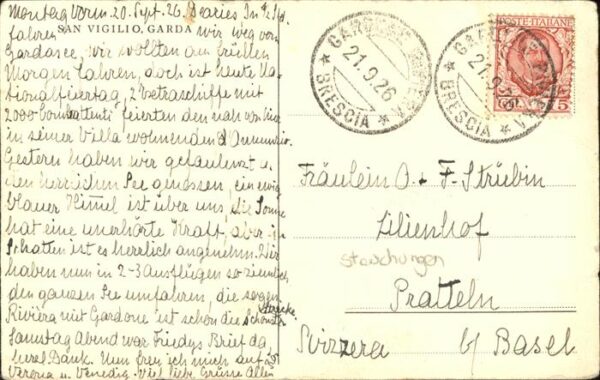 Montag Vorm. 20. Sept. 26. Dearies In 1 Std.
fahren wir weg vom
SAN VIGILIO, GARDA
Gardasee, wir wollten am frühen
Morgen fahren, doch ist heute Na-
tionalfeiertag, 2 Extraschiffe mit
2000 Combattenti feierten den nah von hier
in seiner Villa wohnenden d'Annunzio.
Gestern haben wir gefaulenzt u.
den herrlichen See genossen, ein ewig
blauer Himel ist über uns, die Sonne
hat eine unerhörte Kraft, aber im
Schatten ist es herrlich angenehm. Wir
haben nun in 2-3 Ausflügen so ziemlich
den ganzen See umfahren, die sogen.
Riviera mit Gardone ist schon die schönste
Strecke.
Samstag Abend war Friedys Brief da,
herzl. Dank. Nun freu ich mich auf
Verona u. Venedig. Viel liebe Grüsse Allen
GARDONE RIVIERA
21.9.26
BRESCIA
GARDONE RIVIERA
21.9.26
BRESCIA
POSTE ITALIANE
75
Fräulein O. + F. Strübin
Lilienhof
Stauchungen
Pratteln
Svizzera b/ Basel